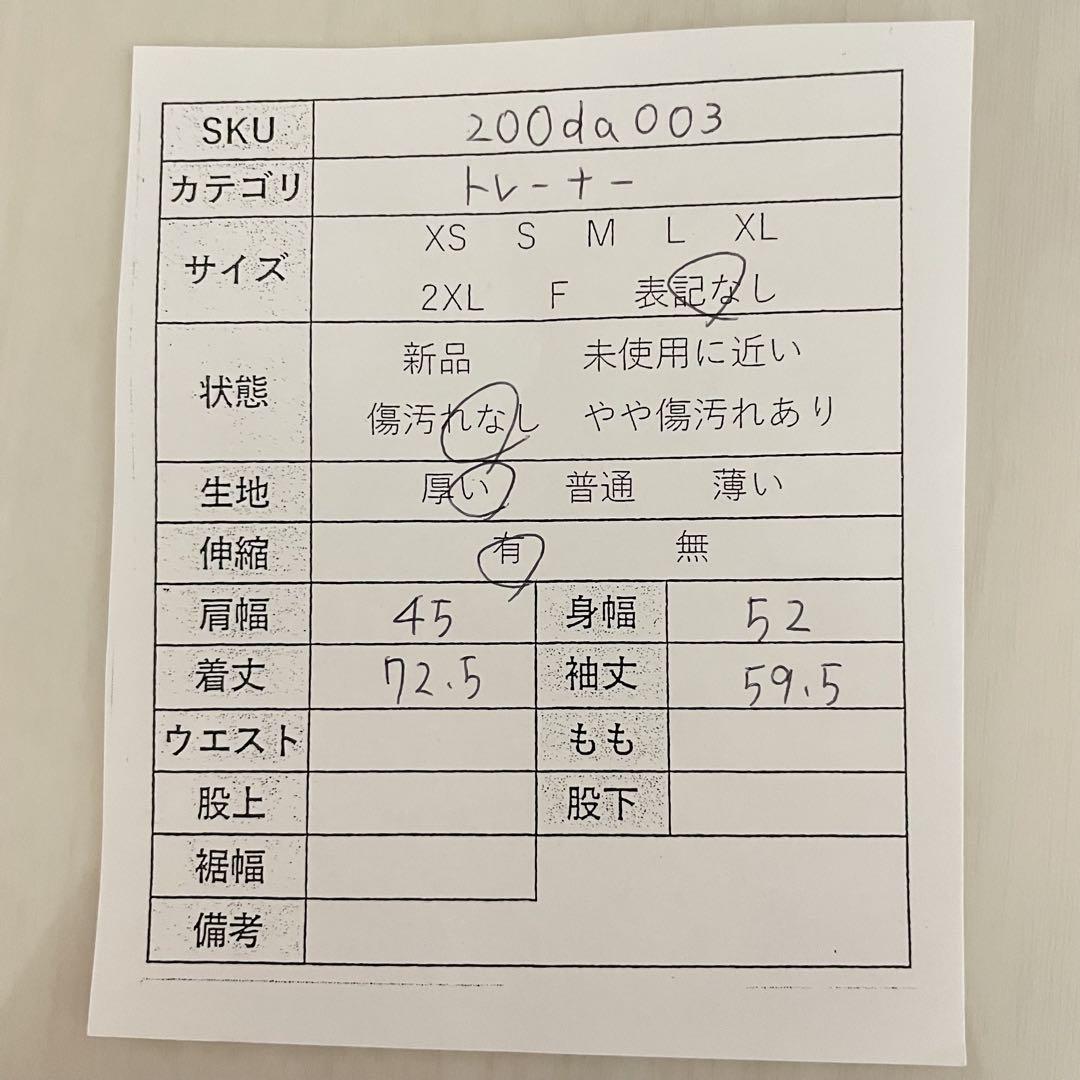 SKU 200da003
カテゴリ トレーナー
サイズ XS S M L XL
2XL F 表記なし
状態 新品 未使用に近い
傷汚れなし やや傷汚れあり
生地 厚い 普通 薄い
伸縮 有 無
肩幅 45 身幅 52
着丈 72.5 袖丈 59.5
ウエスト もも
股上 股下
裾幅
備考